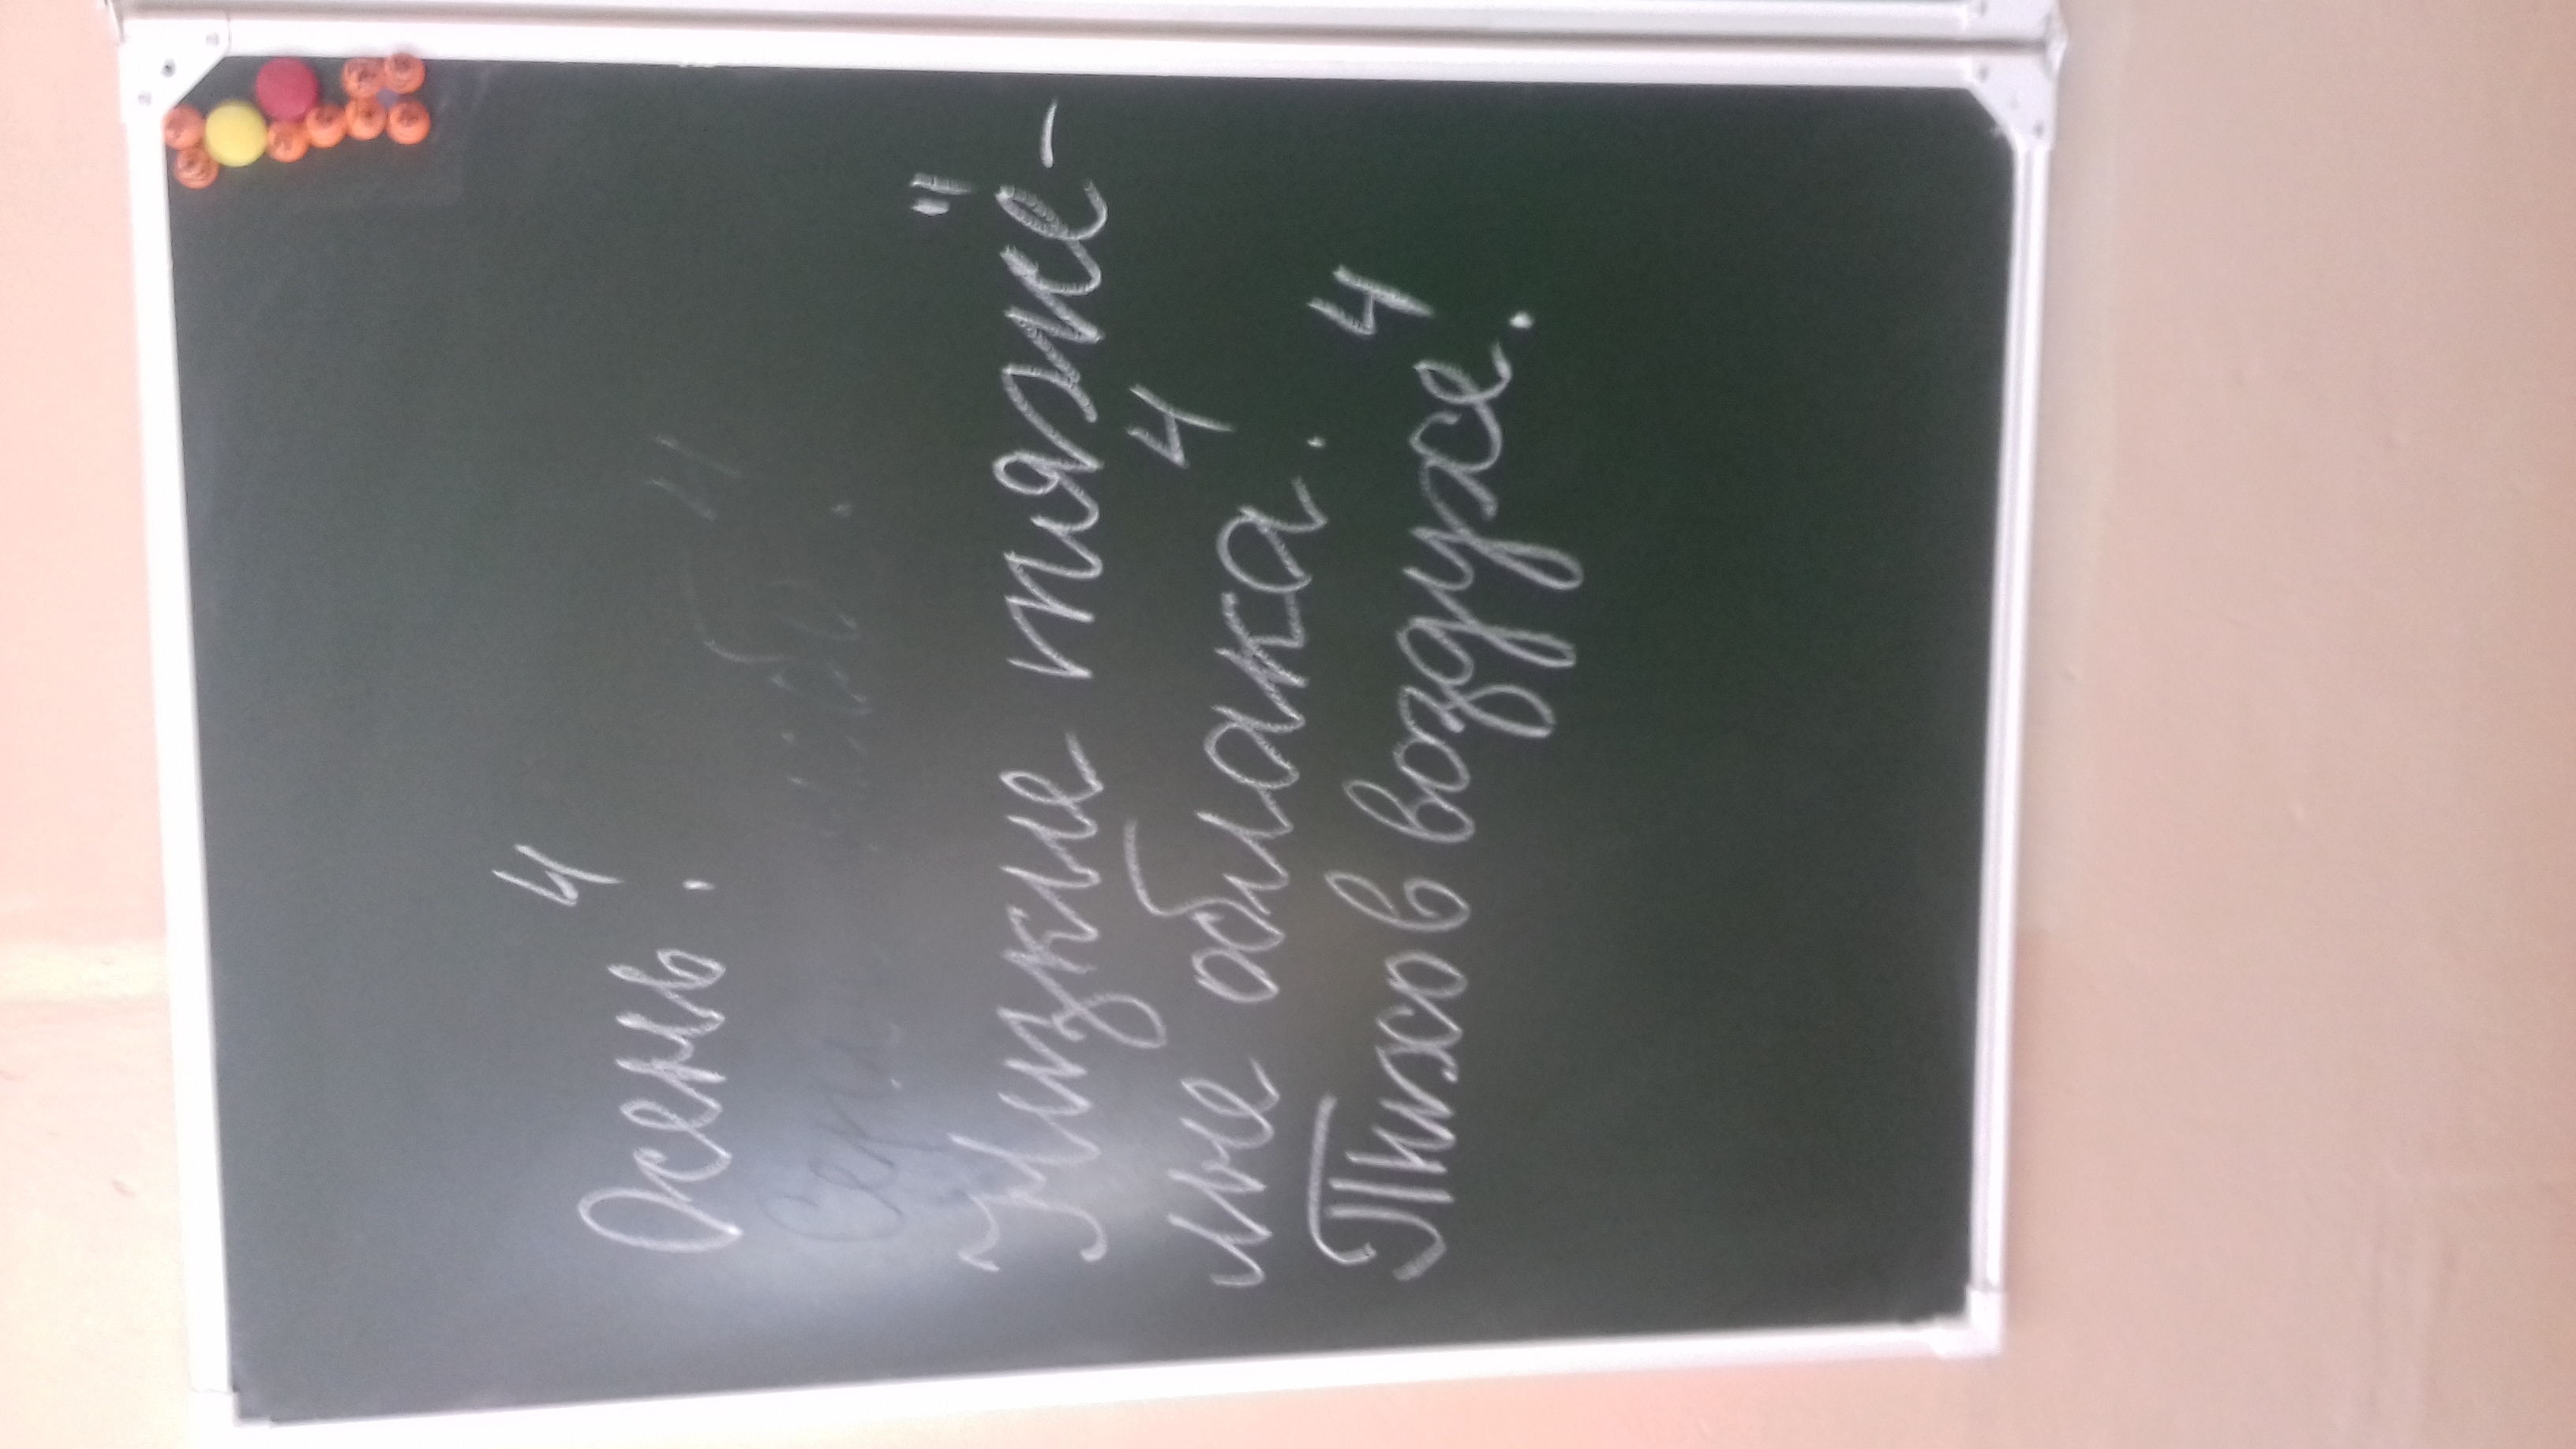 Осень. 4
Низкие тяжё-
лые облака. 4
Тихо в воздухе. 4